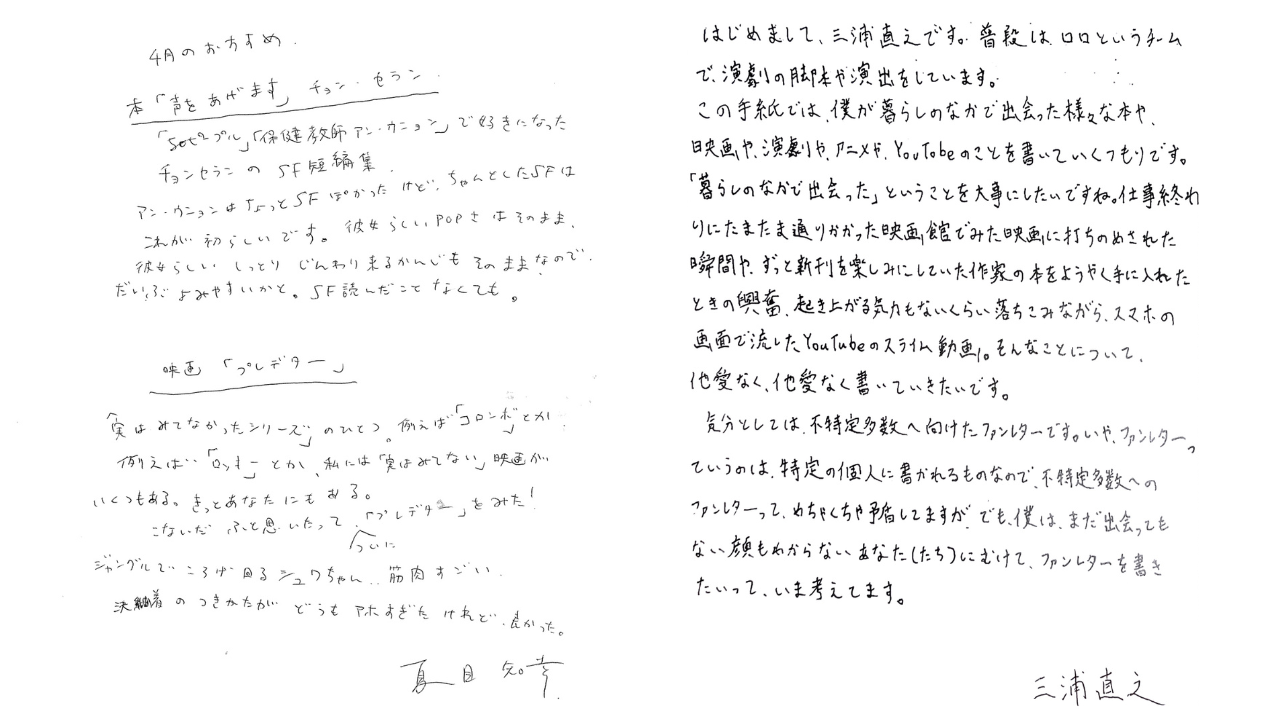 4月のおすすめ.
本「声をあげます」チョン・セラン.
「フィフティ・ピープル」「保健教師アン・ウニョン」で好きになった
チョンセランの SF短編集.
アン・ウニョンはちょっとSFぽかったけど、ちゃんとしたSFは
これが初らしいです。彼女らしいPOPさはそのまま、
彼女らしい しっとり じんわり来るかんじも そのままなので.
だいぶ よみやすいかと。SF読んだことなくても。
映画「プレデター」
「実はみてなかったシリーズ」のひとつ。例えば「コロンボ」とか.
例えば「ロッキー」とか、私には「実はみてない」映画が
いくつもある。きっとあなたにもある。
こないだ ふと思いたって、ついに「プレデター」をみた！
ジャングルで ころげ回る シュワちゃん.. 筋肉すごい.
決着の つきかたが どうも アホすぎた けれど、良かった。
夏目知幸.
はじめまして、三浦直之です。普段は、ロロというチーム
で、演劇の脚本や演出をしています。
この手紙では、僕が暮らしのなかで出会った様々な本や、
映画や、演劇や、アニメや、YouTubeのことを書いていくつもりです。
「暮らしのなかで出会った」ということを大事にしたいですね。仕事終わ
りにたまたま通りかかった映画館でみた映画に打ちのめされた
瞬間や、ずっと新刊を楽しみにしていた作家の本をようやく手に入れた
ときの興奮、起き上がる気力もないくらい落ちこみながら、スマホの
画面で流したYouTubeのスライム動画。そんなことについて、
他愛なく、他愛なく書いていきたいです。
気分としては、不特定多数へ向けたファンレターです。いや、ファンレターっ
ていうのは、特定の個人に書かれるものなので、不特定多数への
ファンレターって、めちゃくちゃ矛盾してますが、でも、僕は、まだ出会っても
ない顔もわからないあなた(たち)にむけて、ファンレターを書き
たいって、いま考えてます。
三浦直之